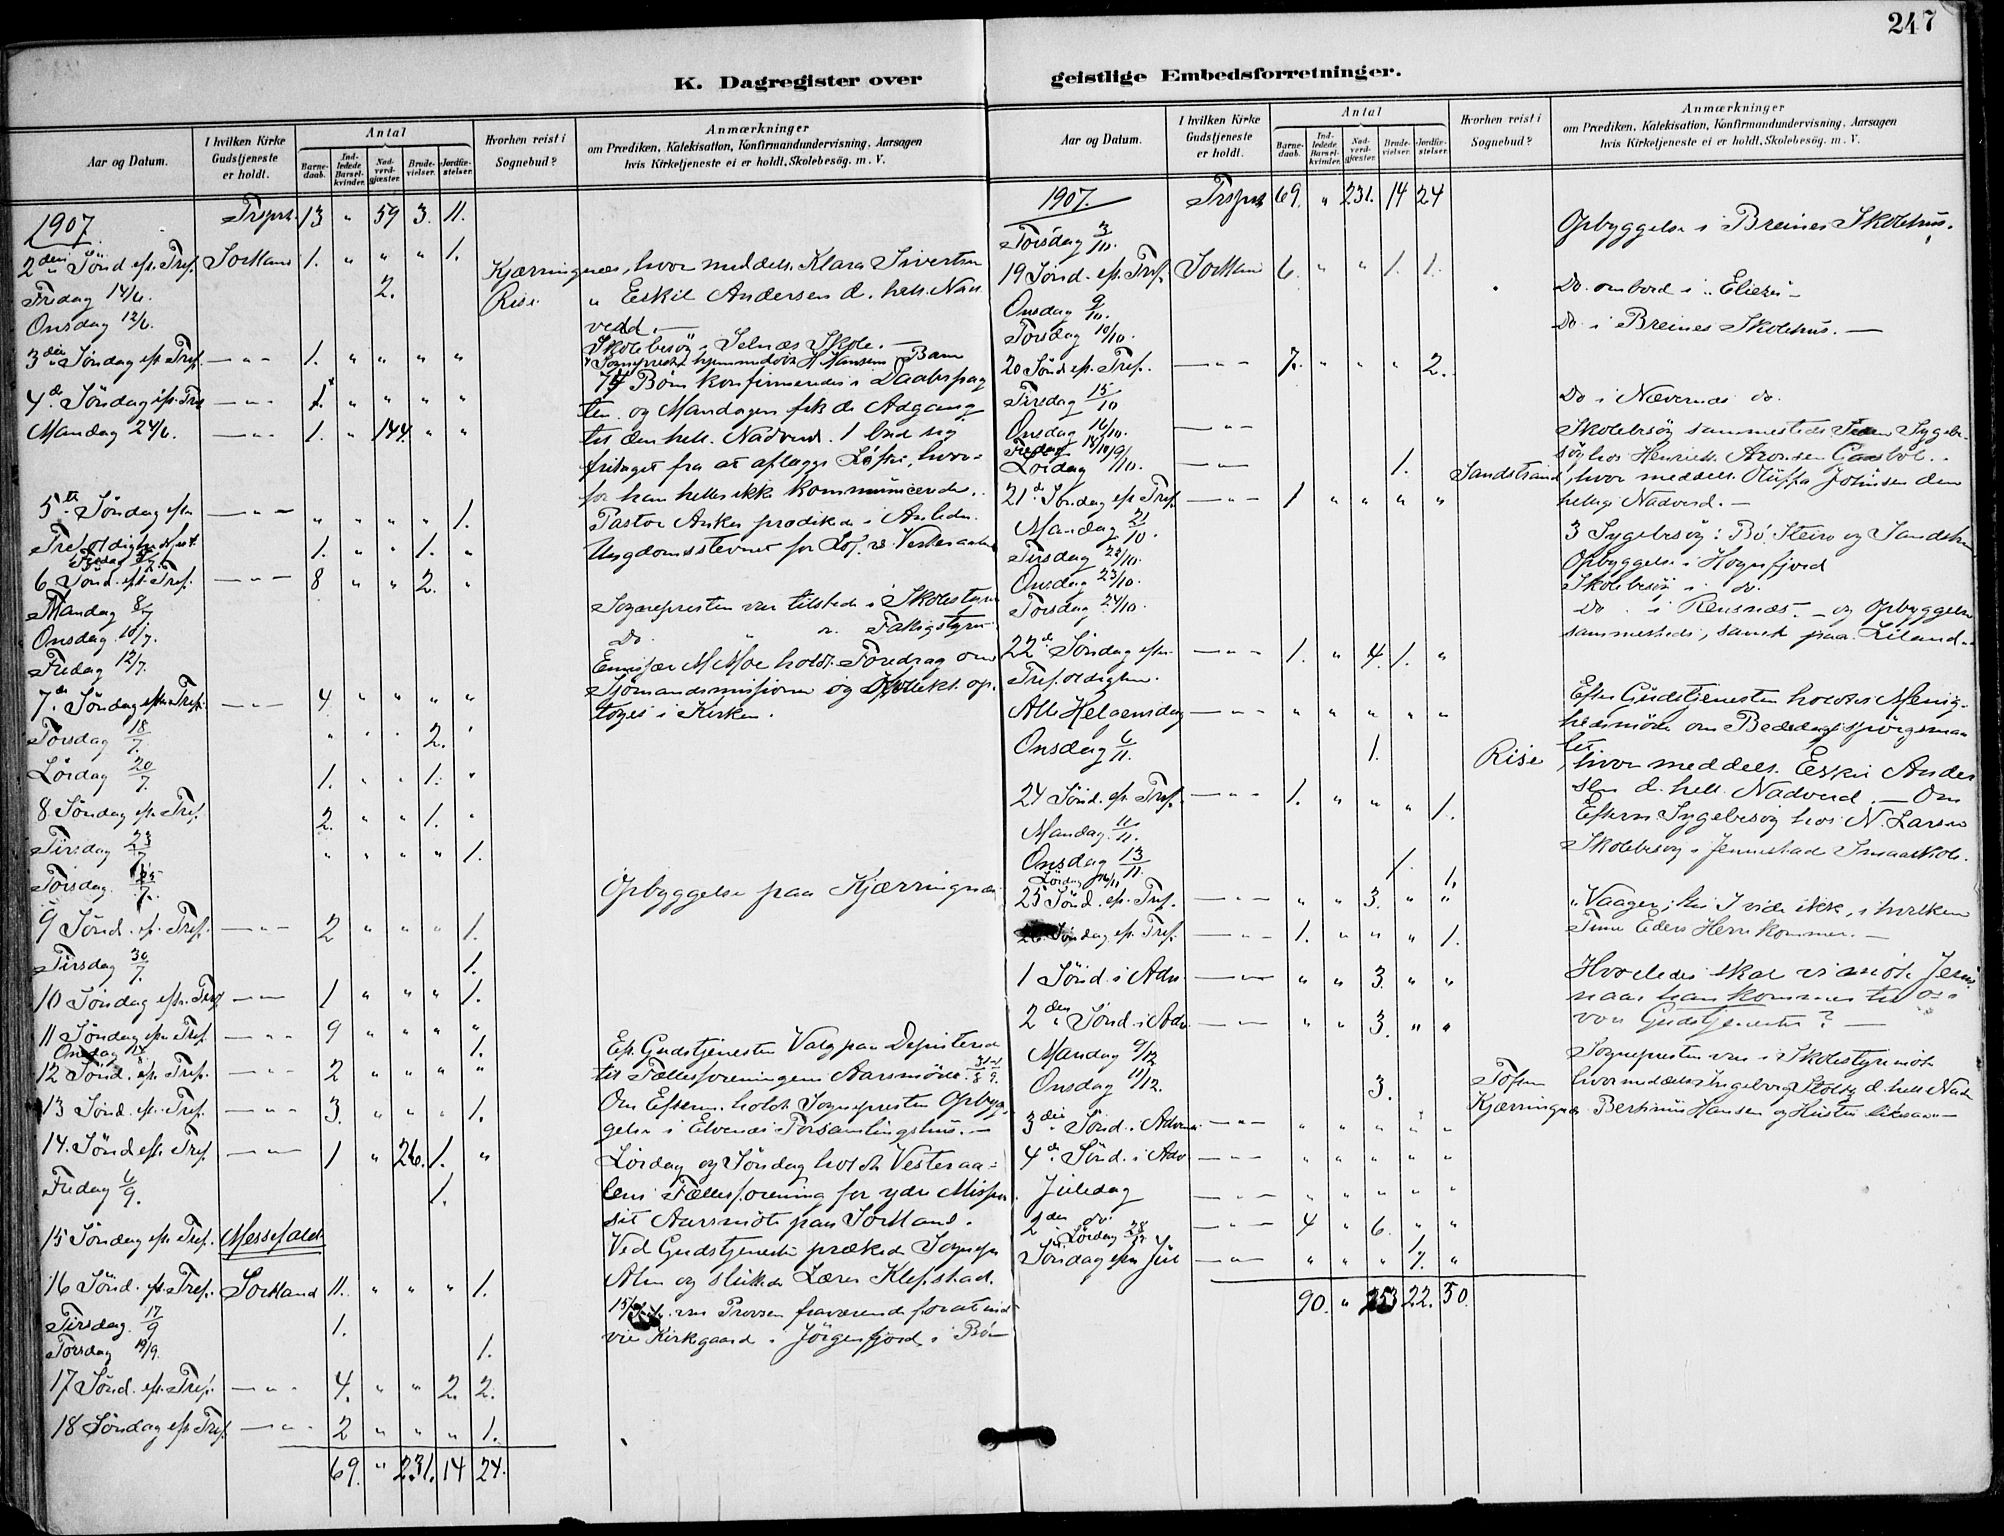 247
K. Dagregister over
geistlige Embedsforretninger.
Aar og Datum.
I hvilken Kirke Gudstjeneste er holdt.
Antal
Barnedaab.
Indledede Barselkvinder.
Nadverdgjæster.
Brudevielser.
Jordfæstelser.
Hvorhen reist i Sognebud?
Anmærkninger
om Prædiken, Katekisation, Konfirmandundervisning, Aarsagen
hvis Kirketjeneste ei er holdt, Skolebesøg. m. V.
1907. Trsprt. 13 " 59 3. 11.
2den Sönd. eft. Tref. Sortland 1. " " " 1.
Fredag 14/6. 2. Kjærringnæs, hvor meddelt. Klara Sivertsen
Onsdag 12/6. Risø " Eskil Andersen d. hell. Nad
verd. —
Skolebesög i Selnæs Skole. —
3die Söndag eft. Tref. — " — 1. " " " "
4de Söndag eft. Tref. — " — 1. " " " "
Börn konfirmeredes i Daabspag
ten og Mandagen fik de Adgang
Mandag 24/6. — " — 1. " 144. " "
til den hell. Nadverd. 1 bad sig
fritaget fra at aflægge Löftet, hvor-
for han heller ikke kommunicerede.
5te Söndag efter — " — " " " " 1.
Pastor Anker prædikede i Anledn.
Trefoldighedsfest.
1. " " 1. "
Ungdomsstevnet for Lof. & Vesteraalen
6. Sönd. eft. Tref. — " — 8 " " 2. "
Mandag 8/7
Sognepresten var tilstede i Skolestyre
Onsdag 10/7. Do " " Fattigstyre
Fredag 12/7.
Emissær M Moe holdt Foredrag om
7de Söndag efter Tref. — " — 4 " " " "
Sjömandsmissionen og Offer
toges i Kirken.
Torsdag 18/7. " " " 2. "
Lördag 20/7. 1. " " 1. "
8 Söndag eft. Tref. 2. " " 1. "
Tirsdag 23/7 " " " " 1.
Torsdag 25/7. Opbyggelse paa Kjærringnæs
9 Sönd. eft. Tref. — " — 2 " " " 1.
Tirsdag 30/7. 1.
10 Söndag eft. Tref. — " — 1 " " " 1.
11 Söndag efter Tref. — " — 9 " " " "
Onsdag 1.
Eft. Gudstjenesten Valg paa Deputerede
12 Sönd. eft. Tref. — " — 2 " " " "
til Fællesforeningens Aarsmöde
13 Sönd. eft. Tref. — " — 3. " " " 1.
Om Efterm. holdt Sognepresten Opbyg
gelse i Elvenes Forsamlingshus. —
14. Sönd eft. Tref. — " — 1 " 26. 1. "
Lördag og Söndag holdt Vesteraa-
Fredag 6/9. 1.
lens Fællesforening for ydre Mission
sit Aarsmöte paa Sortland.
15 Söndag eft. Tref. Messefald
Ved Gudstjenesten prækede Sognepr.
16 Sönd. eft. Tref. Sortland 11. " " " 1.
Alm og sluttede Lærer Klepstad.
Tirsdag 17/9 1.
var Provsen fraværende for at ind
vie Kirkgaard i Jörgenfjord i Bö
Torsdag 19/9. 1.
17 Sönd. eft. Tref. — " — 4. " " 2. 2.
18 Söndag eft. Tref. — " — 2 " " " 1.
69. " 231. 14 24.
Aar og Datum.
I hvilken Kirke Gudstjeneste er holdt.
Antal
Barnedaab.
Indledede Barselkvinder.
Nadverdgjæster.
Brudevielser.
Jordfæstelser.
Hvorhen reist i Sognebud?
Anmærkninger
om Prædiken, Katekisation, Konfirmandundervisning, Aarsagen
hvis Kirketjeneste ei er holdt, Skolebesøg. m. V.
1907. Trsprt 69. " 231. 14 24
Torsdag 3/10. Opbyggelse i Breines Skolehus.
19 Sönd. eft. Tref. Sortland 6. " " 1. 1.
Onsdag 9/10. Do. ombord i "Eliezer"
Torsdag 10/10. Do i Breines Skolehus. —
20 Sönd. eft. Tref. — " — 7. " " " 2.
Tirsdag 15/10 Do i Nævernes do.
Onsdag 16/10. — " —
Skolebesög sammesteds Sygebe-
Fredag 18/10
sög hos Henriette Aronsen
Lördag 19/10. — " — 1.
Sandstrand, hvor meddelt. Oluffa Johnsen den
21de Söndag eft. Tref. — " — 1 " " " "
hellige Nadverd. —
Mandag 21/10. 3 Sygebesög: Bö, Steiro og Sandstrand
Tirsdag 22/10. Opbyggelse i Hognfjord
Onsdag 23/10. Skolebesög i do.
Torsdag 24/10. Do. i Reinsnæs — og Opbyggelse
sammesteds, samt paa Eiland.
22de Söndag efter — " — 1. " 4. 1. "
Trefoldighed.
Efter Gudstjenesten holdtes Menig-
Alle Helgensdag — " — " " " " "
hedsmöde om Bededagsspörgsmaa
let.
Onsdag 6/11. 1. Risø, hvor meddelt. Eskil Ander
sen d. hell. Nadverd. — Om
24 Sönd. eft. Tref. — " — 1. " " " 1.
Efterm. Sygebesög hos N. Larsen
Mandag 11/11.
Skolebesög i Jennestad Smaaskole.
Onsdag 13/11. 1.
Lördag 16/11 1.
25 Sönd. eft. Tref. — " — " " 3. " "
"Vaager, thi I vide ikke, i hvilken
26 Söndag eft. Tref. — " — 1. " " " 1.
Time Eders Herre kommer. —
1 Sönd. i Adv. — " — " " 3. " "
Hvorledes skal vi möte Jesus
naar han kommer til os i
2den Sönd. i Adv. — " — " " 3. " "
vor Gudstjeneste? —
Mandag 9/12
Sognepresten var i Skolestyremöte
Onsdag 11/12. 3. Toften hvor meddeltes Ingeborg Stoltz d. hell. Nadv
Kjærringnæs. Bertinus Hansen og Hustru —
3die Sönd. i Advent — " — " " " " "
4de Sönd. i Adv — " — " " " " "
Juledag — " — " " " " "
2den do — " — 4 " 6. " "
Lördag 28/12
Söndag efter Jul — " — " " " 7. "
90. " 253 22. 30.